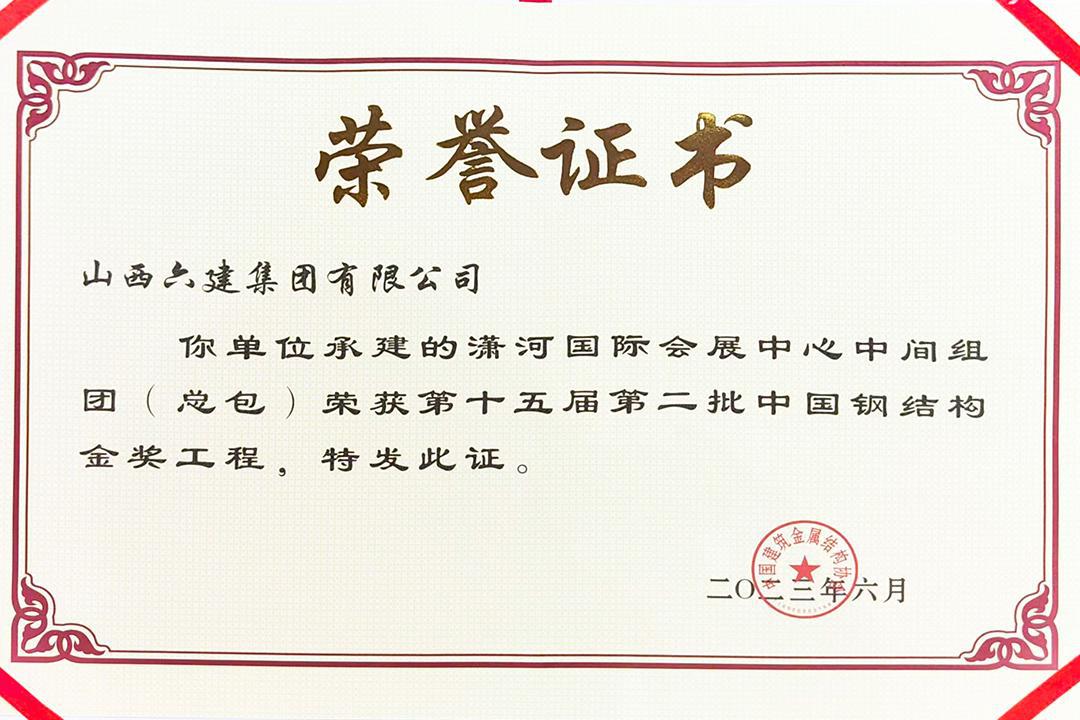 荣誉证书
山西六建集团有限公司
你单位承建的潇河国际会展中心中间组
团（总包）荣获第十五届第二批中国钢结构
金奖工程，特发此证。
中国建筑金属结构协会
二〇二三年六月